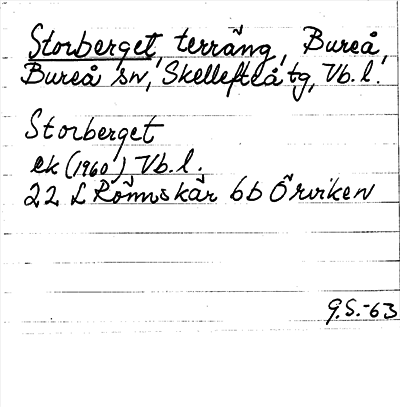 Storberget, terräng, Bureå,
Bureå sn, Skellefteå tg, Vb. l.
Storberget
ek (1960) Vb. l.
22 L Rönnskär 6b Örviken
G.S.-63